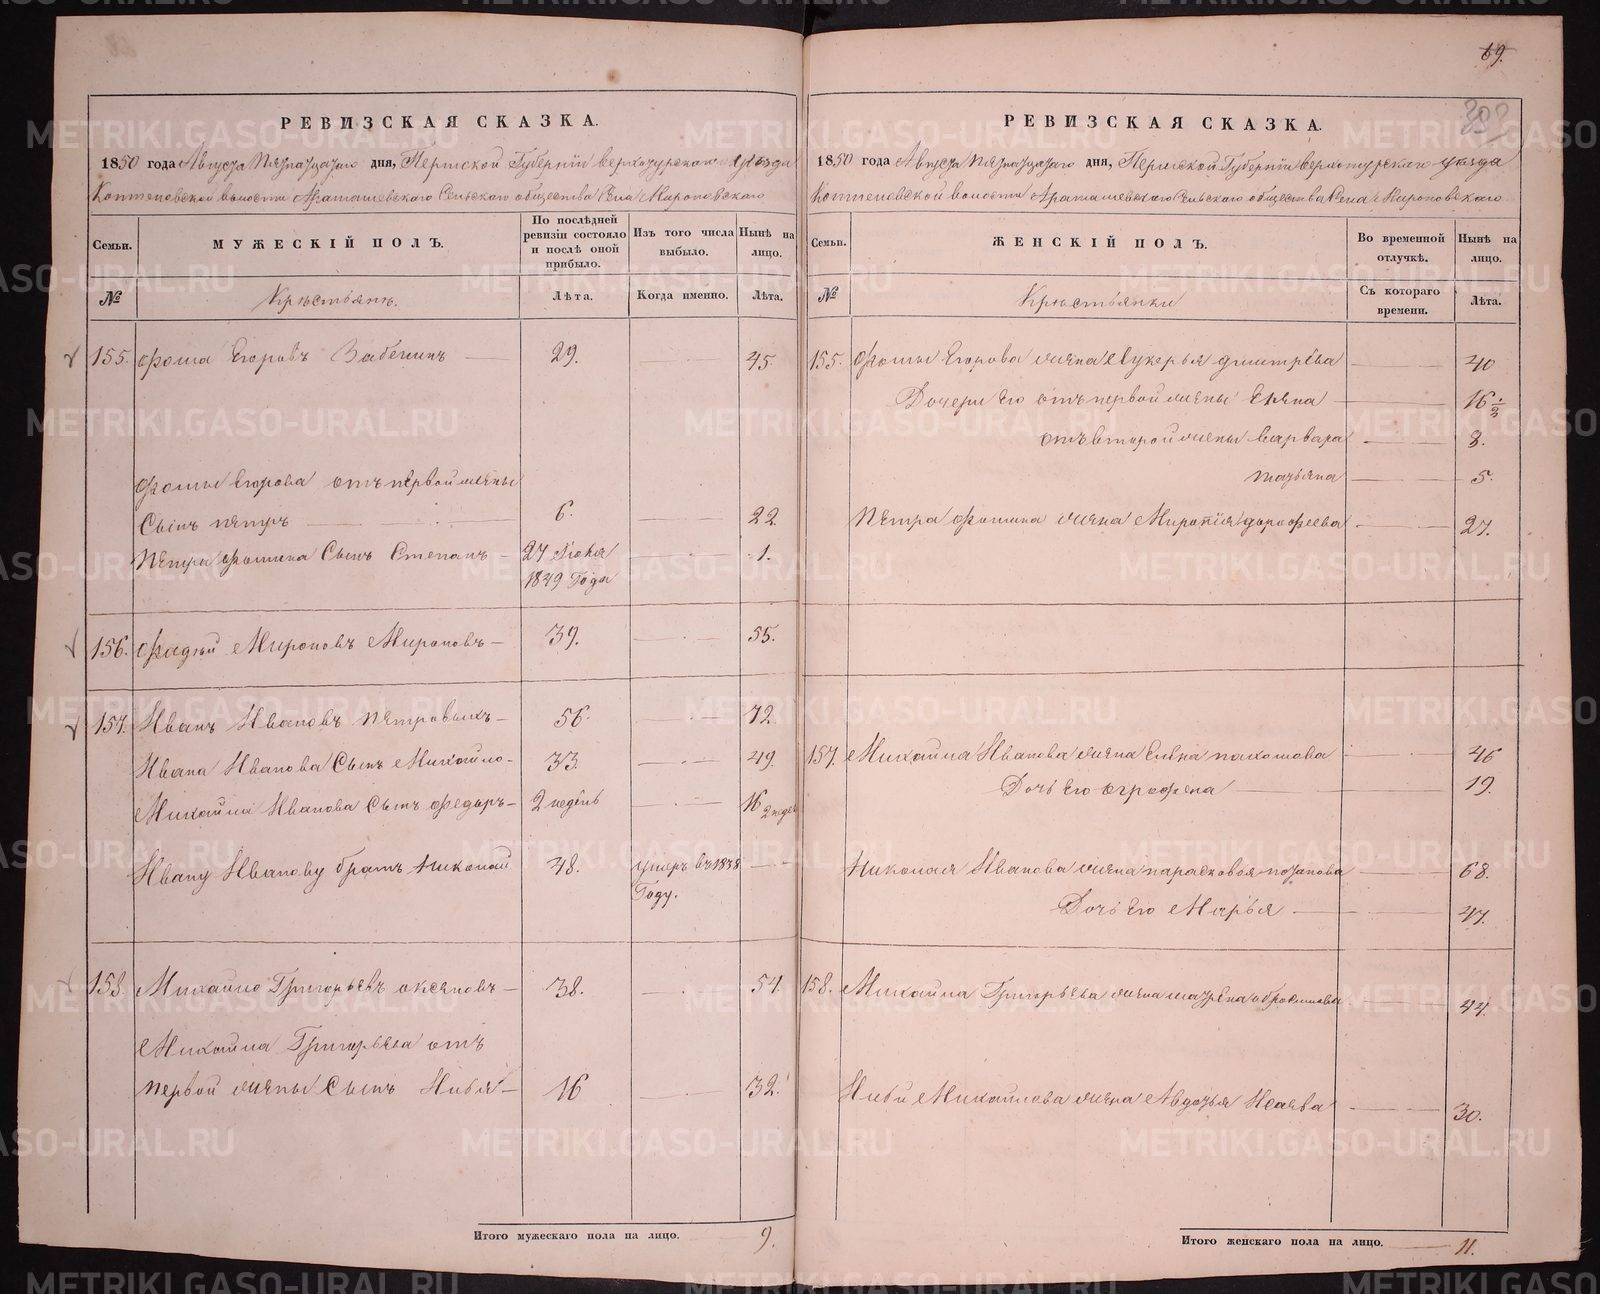 69.
РЕВИЗСКАЯ СКАЗКА.
1850 года Августа Пятнадцатаго дня, Пермской Губерніи верхотурскаго уѣзда
Коптеловской волости Арамашевскаго Сельскаго общества Села Мироновскаго
Семьи.
МУЖЕСКІЙ ПОЛЪ.
По послѣдней ревизіи состояло и послѣ оной прибыло.
Изъ того числа выбыло.
Нынѣ на лицо.
№
Крѣстьянѣ.
Лѣта.
Когда именно.
Лѣта.
155. Фома Егоровъ Забенинъ 29. 45.
Фомы Егорова отъ первой жены
Сынъ петръ 6. 22
Петра Фомина Сынъ Степанъ 27 Июня 1.
1849 Года
156. Фадѣй Мироновъ Мироновъ 39. 55.
157. Иванъ Ивановъ петровыхъ 56. 72
Ивана Иванова Сынъ Михайло 33. 49.
Михайла Иванова Сынъ Федоръ 2 недѣль 16 2 недѣль
Ивану Иванову братъ николай 48. умеръ въ 1838
Году.
158. Михайло Григорьевъ аксеновъ 38. 54.
Михайла Григорьева отъ
первой жены Сынъ Ниѳя 16 32.
Итого мужескаго пола на лицо. 9.
РЕВИЗСКАЯ СКАЗКА.
1850 года Августа Пятнадцатаго дня, Пермской Губерніи верхотурскаго уѣзда
Коптеловской волости Арамашевскаго Сельскаго общества Села Мироновскаго
Семьи.
ЖЕНСКІЙ ПОЛЪ.
Во временной отлучкѣ.
Нынѣ на лицо.
№
Крѣстьянки
Съ котораго времени.
Лѣта.
155. Фомы Егорова жена Лукерья дмитрева 40
Дочери Его отъ первой жены Елена 16 ½
отъ второй жены варвара 8.
татьяна 5.
Петра Фомина жена Миропія дорофеева 27.
157. Михайла Иванова жена Елена пахомова 46
Дочь Его огрофена 19.
Николая Иванова жена парасковья 68.
Дочь Его Марья 47.
158. Михайла Григорьева жена 44.
Михайлова жена Авдотья Исаева 30.
Итого женскаго пола на лицо. 11.
METRIKI.GASO-URAL.RU